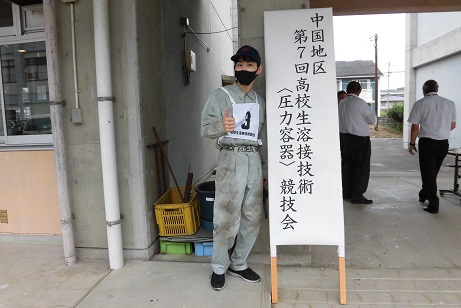 中国地区
第7回高校生溶接技術
〈圧力容器〉競技会
3